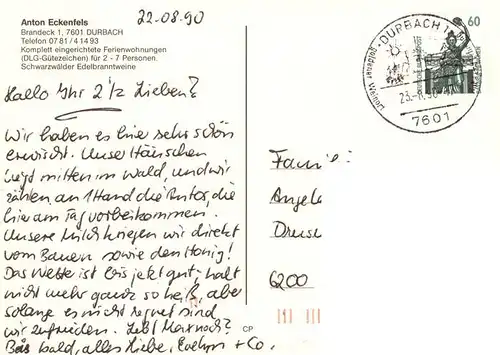 Anton Eckenfels
Brandeck 1, 7601 DURBACH
Telefon 07 81 / 4 14 93
Komplett eingerichtete Ferienwohnungen
(DLG-Gütezeichen) für 2 - 7 Personen.
Schwarzwälder Edelbranntweine
22.08.90
Hallo Ihr 2 1/2 Lieben?
Wir haben es hier sehr schön
erwischt. Unser Häuschen
liegt mitten im Wald, und wir
zählen, an 1 Hand die Autos, die
hier am Tag vorbeikommen.
Unsere Milch kriegen wir direkt
vom Bauern sowie den Honig!
Das Wetter ist bis jetzt gut, halt
nicht mehr ganz so heiß, aber
solange es nicht regnet sind
wir zufrieden. Lebt Max noch?
Bis bald, alles Liebe, Evelyn + Co.
DURBACH
60
7601
Famil
Angela
6200
CP